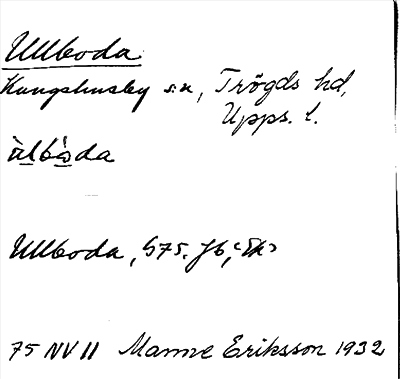 Ullboda
Kungshusby sn, Trögds hd,
Upps. l.
ùlbóda
Ullboda, 575. Jb, Ek
75 NV II Manne Eriksson 1932